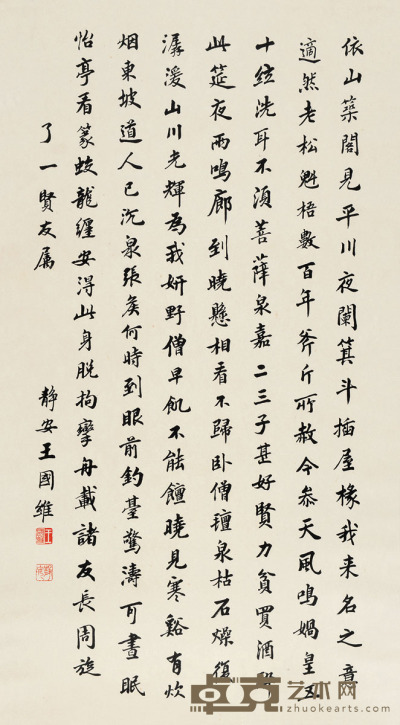 依山築閣見平川夜闌箕斗插屋椽我来名之意
適然老松魁梧數百年斧斤所赦今叅天風鳴媧皇五
十絃洗耳不須菩薩泉嘉二三子甚好賢力貧買酒醉
此筵夜雨鳴廊到曉懸相看不歸卧僧氊泉枯石燥復
潺湲山川光輝為我妍野僧早飢不能饘曉見寒谿有炊
烟東坡道人已沉泉張矦何時到眼前釣臺驚濤可晝眠
怡亭看篆蛟龍纏安得此身脫拘攣舟載諸友長周旋
了一賢友屬
静安王國維
艺术网
http://www.zhuokearts.com